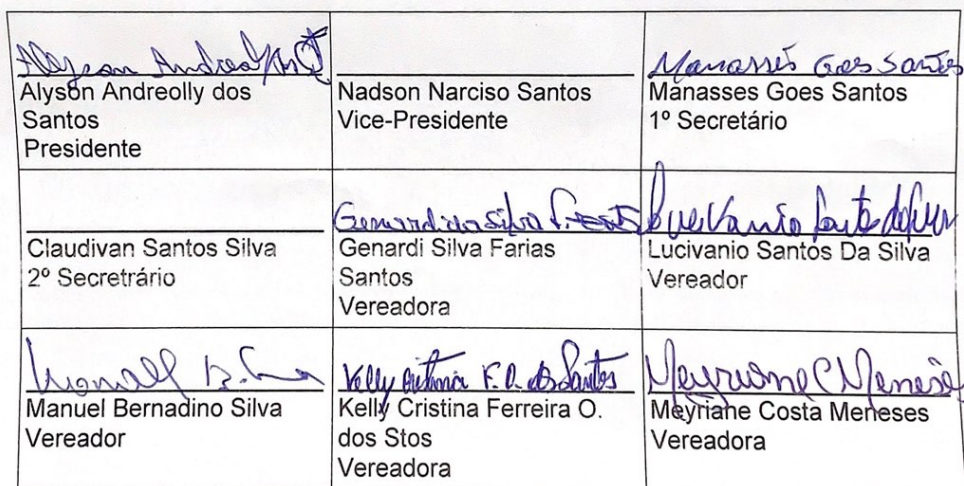 Alyson Andreolly dos
Santos
Presidente
Nadson Narciso Santos
Vice-Presidente
Manassés Goes Santos
Manasses Goes Santos
1º Secretário
Claudivan Santos Silva
2º Secretrário
Genardi da Silva F. Santos
Genardi Silva Farias
Santos
Vereadora
Lucivanio Santos da Silva
Lucivanio Santos Da Silva
Vereador
Manuel B. Silva
Manuel Bernadino Silva
Vereador
Kelly Cristina F. O. dos Santos
Kelly Cristina Ferreira O.
dos Stos
Vereadora
Meyriane C Meneses
Meyriane Costa Meneses
Vereadora